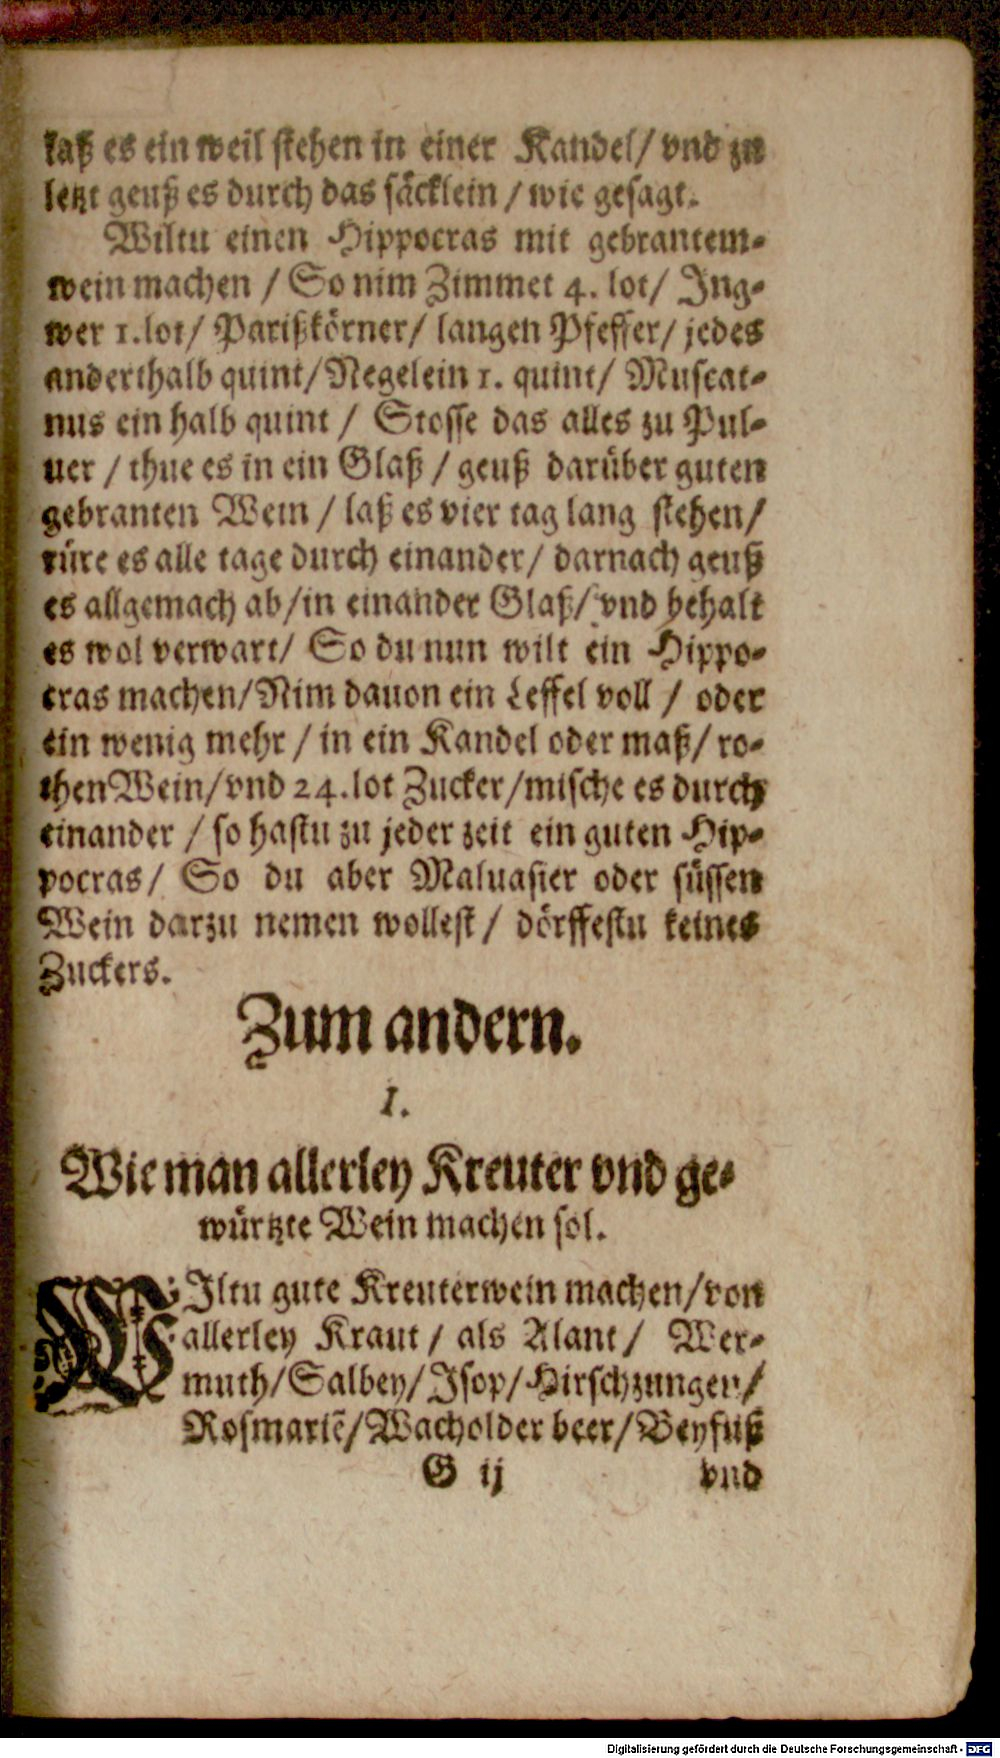 laß es ein weil stehen in einer Kandel/ vnd zu
letzt geuß es durch das säcklein / wie gesagt.
Wiltu einen Hippocras mit gebrantem-
wein machen / So nim Zimmet 4. lot/ Ing-
wer 1. lot/ Parißkörner/ langen Pfeffer/ jedes
anderthalb quint/ Negelein 1. quint/ Muscat-
nus ein halb quint / Stosse das alles zu Pul-
uer / thue es in ein Glaß / geuß darüber guten
gebranten Wein / laß es vier tag lang stehen/
rüre es alle tage durch einander/ darnach geuß
es allgemach ab/ in einander Glaß/ vnd behalt
es wol verwart/ So du nun wilt ein Hippo-
cras machen/ Nim dauon ein Leffel voll / oder
ein wenig mehr / in ein Kandel oder maß/ ro-
then Wein/ vnd 24. lot Zucker/ mische es durch
einander / so hastu zu jeder zeit ein guten Hip-
pocras/ So du aber Maluasier oder süssen
Wein darzu nemen wollest / dörffestu keines
Zuckers.
Zum andern.
1.
Wie man allerley Kreuter vnd ge-
würtzte Wein machen sol.
WIltu gute Kreuterwein machen/ von
allerley Kraut / als Alant / Wer-
muth/ Salbey/ Isop/ Hirschzungen/
Rosmariē/ Wacholder beer/ Beyfuß
G ij vnd
Digitalisierung gefördert durch die Deutsche Forschungsgemeinschaft - DFG